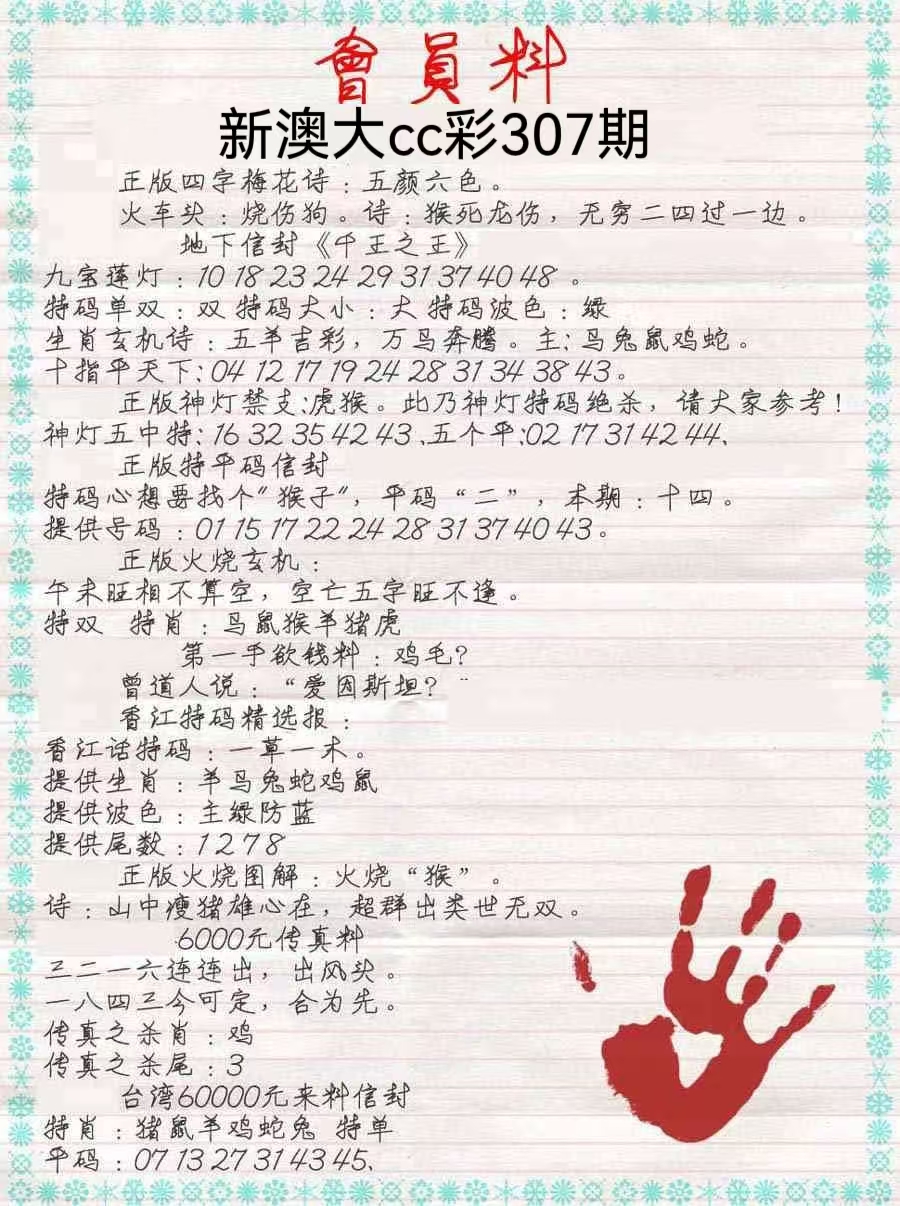 會員料
新澳大cc彩307期
正版四字梅花诗：五颜六色。
火车头：烧伤狗。诗：猴死龙伤，无穷二四过一边。
地下信封《千王之王》
九宝莲灯：10 18 23 24 29 31 37 40 48 。
特码单双：双 特码大小：大 特码波色：绿
生肖玄机诗：五羊吉彩，万马奔腾。主：马兔鼠鸡蛇。
十指平天下：04 12 17 19 24 28 31 34 38 43。
正版神灯禁支：虎猴。此乃神灯特码绝杀，请大家参考！
神灯五中特：16 32 35 42 43、五个平：02 17 31 42 44、
正版特平码信封
特码心想要找个"猴子"，平码“二”，本期：十四。
提供号码：01 15 17 22 24 28 31 37 40 43。
正版火烧玄机：
午未旺相不算空，空亡五字旺不逢。
特双 特肖：马鼠猴羊猪虎
第一手欲钱料：鸡毛？
曾道人说：“爱因斯坦？¨
香江特码精选报：
香江话特码：一草一木。
提供生肖：羊马兔蛇鸡鼠
提供波色：主绿防蓝
提供尾数：1 2 7 8
正版火烧图解：火烧“猴”。
诗：山中瘦猪雄心在，超群出类世无双。
6000元传真料
三二一六连连出，出风头。
一八四三今可定，合为先。
传真之杀肖：鸡
传真之杀尾：3
台湾60000元来料信封
特肖：猪鼠羊鸡蛇兔 特单
平码：07 13 27 31 43 45、